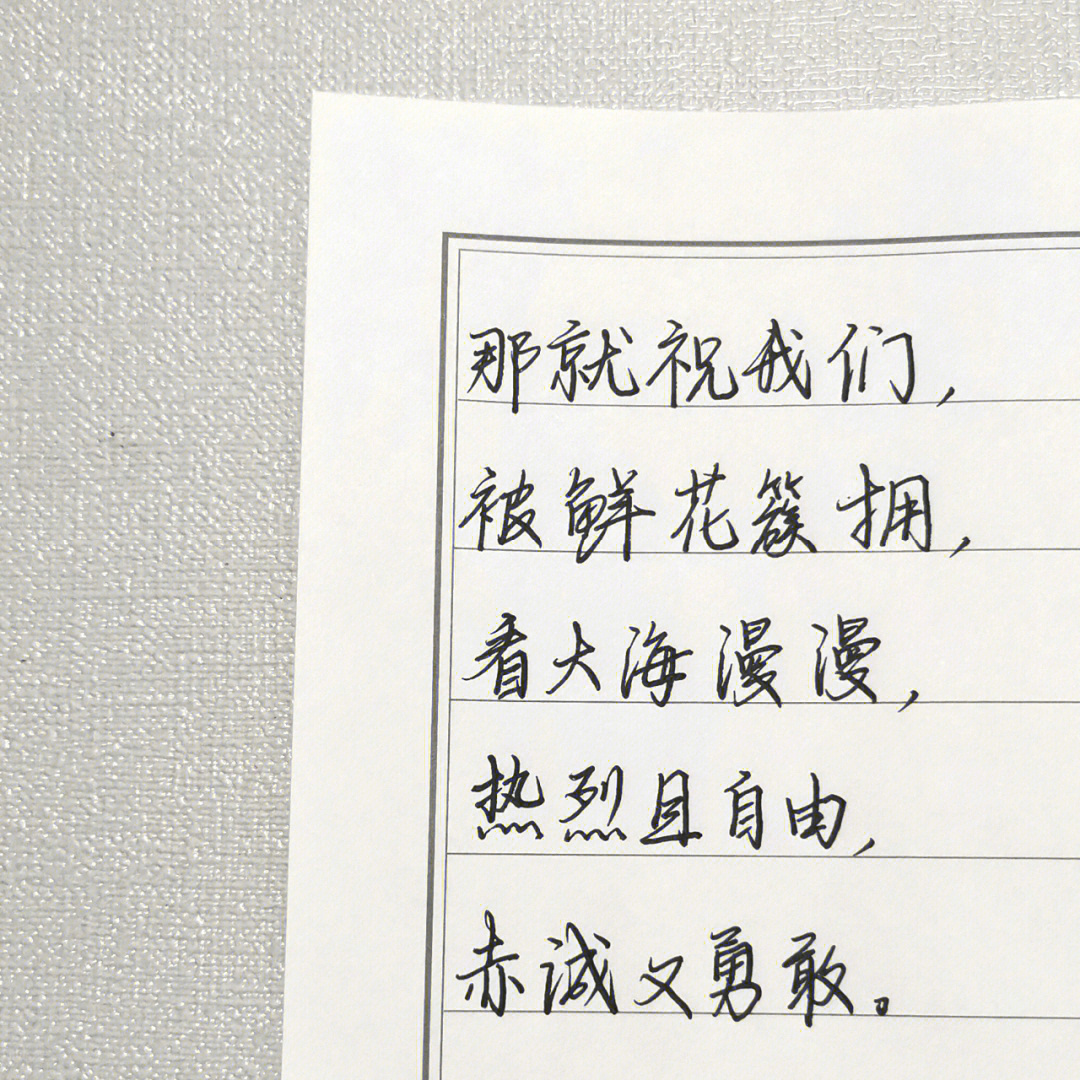 那就祝我们，
被鲜花簇拥，
看大海漫漫，
热烈且自由，
赤诚又勇敢。